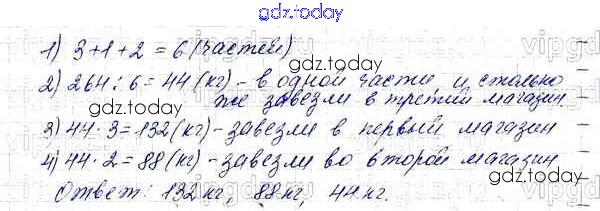 gdz.today
1) 3+1+2 = 6 (частей)
2) 264 : 6 = 44 (кг) - в одной части и столько
же завезли в третий магазин.
gdz.today
3) 44 · 3 = 132 (кг) - завезли в первый магазин
4) 44 · 2 = 88 (кг) - завезли во второй магазин
Ответ: 132 кг, 88 кг, 44 кг.
gdz.today